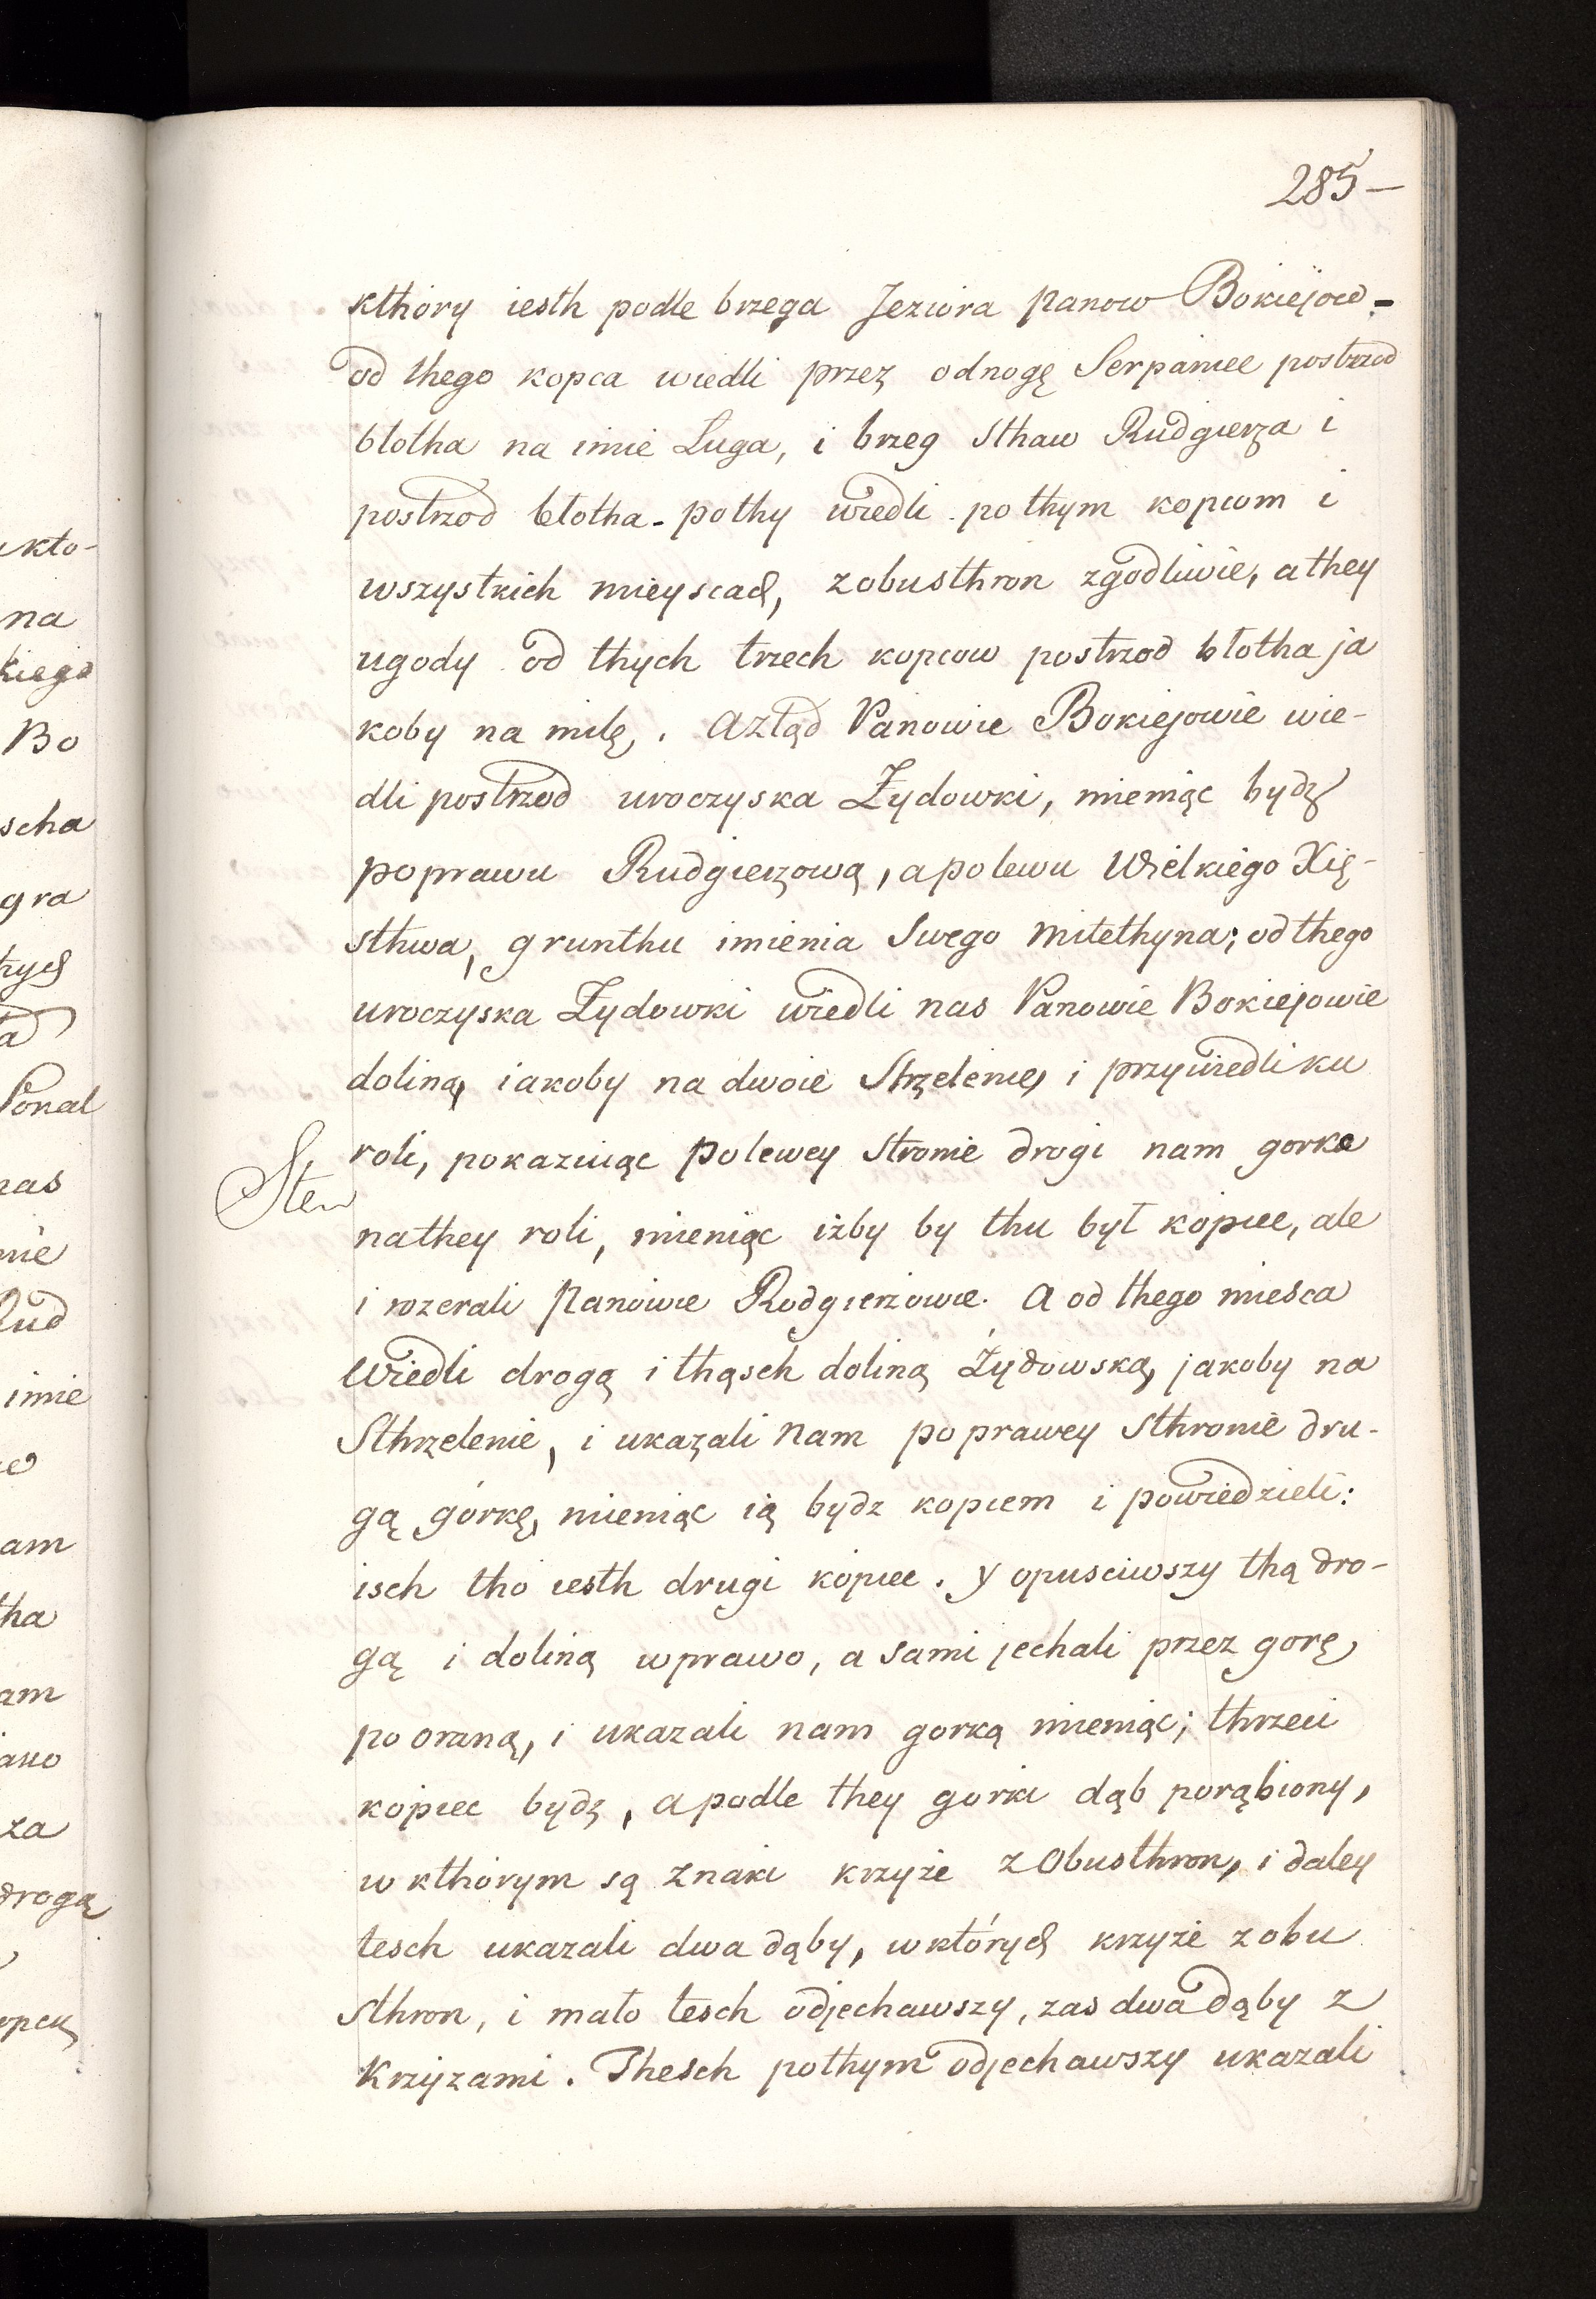 285 –
kthory iesth podle brzega Jeziora panow Bokiejow -
od thego kopca wiedli przez odnogę Serpaniec postrzod
błotha na imie Luga, i brzeg Sthaw Rudgierza i
postrzod błotha - pothy wiedli po thym kopcom i
wszystkich mieyscach, zobusthron zgodliwie, a they
ugody od thych trzech kopcow postrzod błotha ja
koby na milę, . Aztąd Panowie Bokiejowie wie-
dli postrzod uroczyska Żydowki, mieniąc bydz
poprawu Rudgierzową, apolewu Wielkiego Xię-
sthwa, grunthu imienia Swego Mitethyna; od thego
uroczyska Żydowki wiedli nas Panowie Bokiejowie
doliną, iakoby na dwoie Strzelenie, i przywiedli ku
roli, pokazuiąc polewey stronie drogi nam gorka
Sten
nathey roli, mieniąc iżby by thu był kopiec, ale
i rozerali Panowie Rodgierzowie. A od thego miesca
Wiedli drogą i thąsch doliną Żydowską, jakoby na
Sthrzelenie, i ukazali nam poprawey Sthronie dru-
gą górkę, mieniąc ią bydz kopcem i powiedzieli:
isch tho iesth drugi kopiec. y opusciwszy thą dro-
gą i doliną wprawo, a sami jechali przez gorę,
pooraną, i ukazali nam gorką mieniąc; thrzeci
kopiec bydz, apodle they gorki dąb porąbiony,
w kthorym są znaki krzyże zObusthron, i daley
tesch ukazali dwa dąby, wktórych krzyże zobu
Sthron, i mało tesch odjechawszy, zas dwa dąby z
Krzyżami. Thesch pothym odjechawszy ukazali
kto-
na
kiego
Bo
scha
gra
Ponal
nas
nie
Rud
imie
am
tha
am
za
drogą